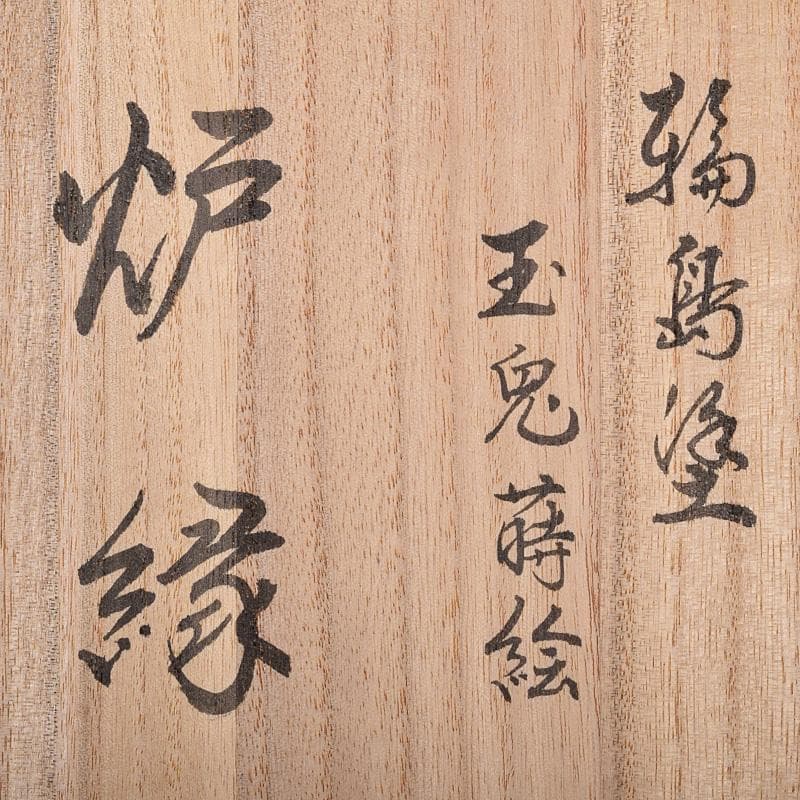 輪島塗
玉兎蒔絵
炉縁